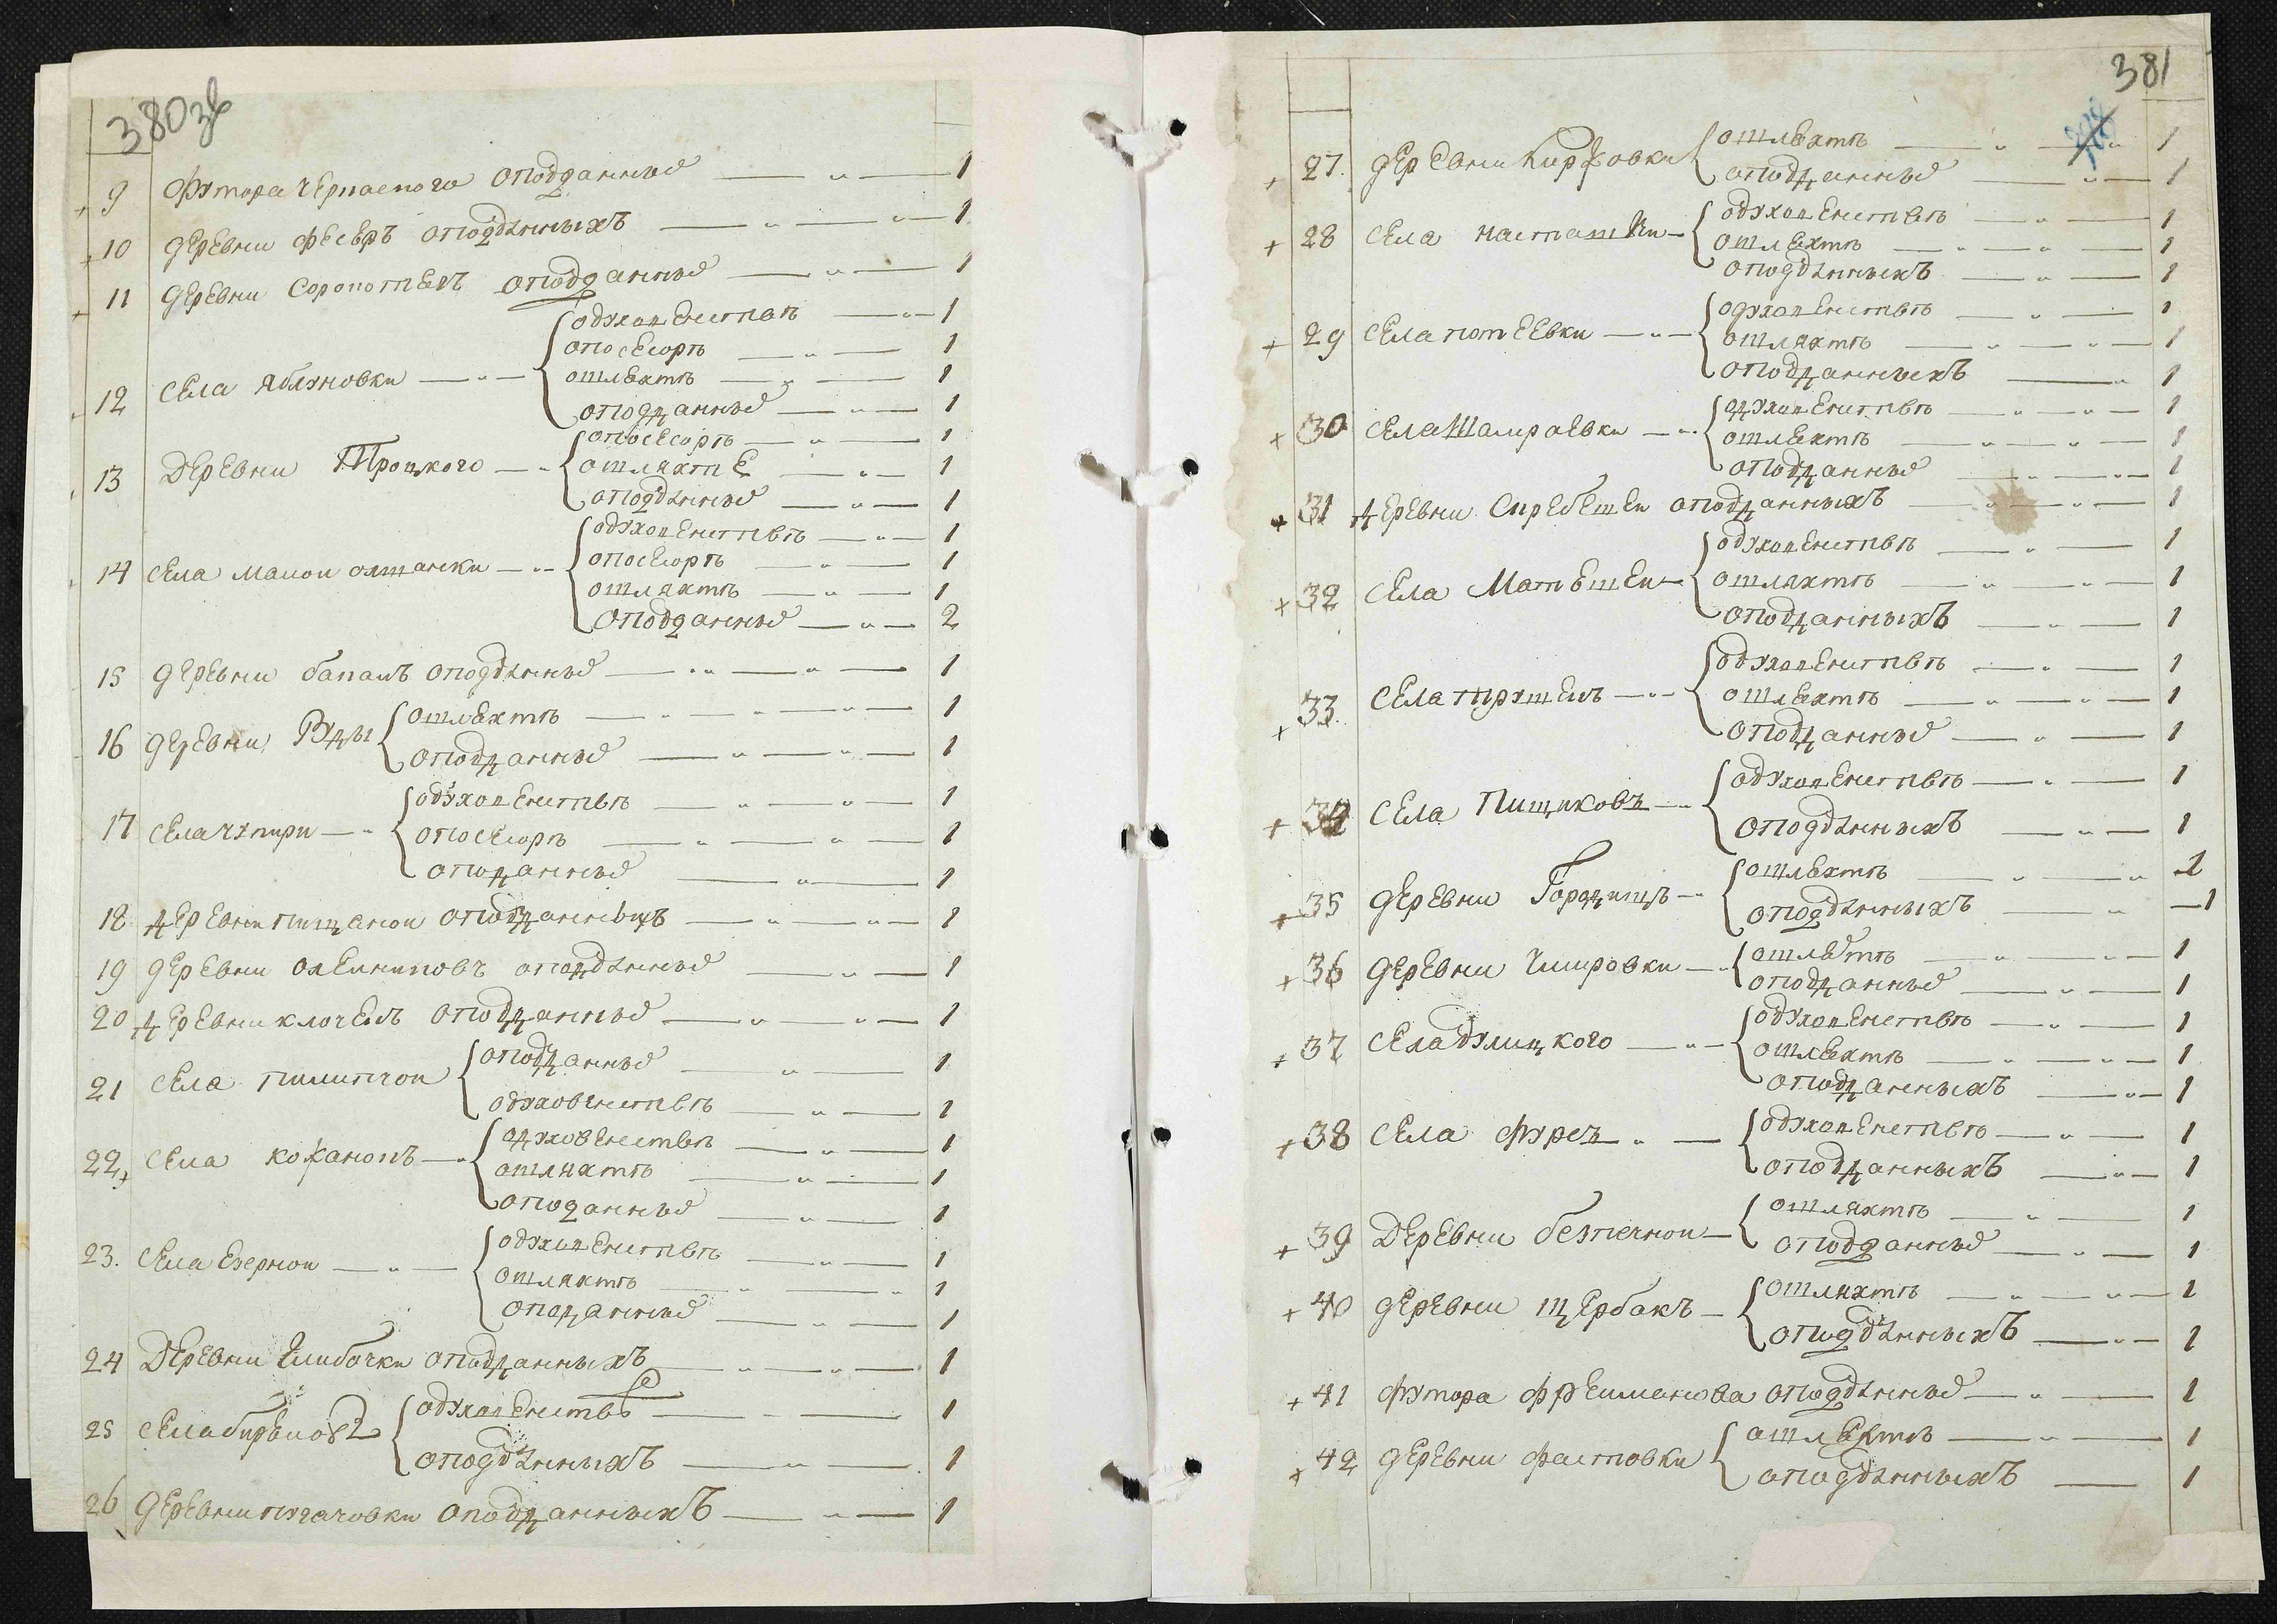 380 зв
9 Футора Чернаспого о подданные 1
10 деревни о подданныхъ 1
11 деревни Соропотекъ о подданные 1
о духовенстве 1
о посесоре 1
12 села Яблуновки о шляхте 1
о подданные 1
о посесоре 1
13 Деревни Троцкого о шляхте 1
о подданные 1
о духовенстве 1
14 села Малои Олшанки о посесоре 1
о шляхте 1
о подданные 2
15 деревни о подданные 1
16 деревни Руды о шляхте 1
о подданные 1
о духовенстве 1
17 села Чупири о посесоре 1
о поданные 1
18 деревни Пищанои о подданныхъ 1
19 деревни о подданные 1
20 деревни Клочекъ о подданные 1
21 села Пилипчои о подданные 1
о духовенстве 1
22 села Коханопъ о духовенстве 1
о шляхте 1
о поданные 1
23. села Езернои о духовенстве 1
о шляхте 1
о поданные 1
24 Деревни Глибочки о подданныхъ 1
25 села о духовенстве 1
о подданныхъ 1
26 деревни Пугачовки о подданныхъ 1
381
27. деревни о шляхте 1
о подданные 1
28 села Насташки о духовенстве 1
о шляхте 1
о подданныхъ 1
29 села Потеевки о духовенстве 1
о шляхте 1
о подданныхъ 1
30 села Шамраевки о духовенстве 1
о шляхте 1
о подданные 1
31 деревни Скребешки о подданныхъ 1
32 села Матюшки о духовенстве 1
о шляхте 1
о подданныхъ 1
33. села Прушекъ о духовенстве 1
о шляхте 1
о подданные 1
34 села Пищиковъ о духовенстве 1
о подданныхъ 1
35 деревни Городищъ о шляхте 1
о подданныхъ 1
36 деревни Чмировки о шляхте 1
о подданные 1
37 села Дулицкого о духовенстве 1
о шляхте 1
о подданныхъ 1
38 села Фурсъ о духовенстве 1
о подданныхъ 1
39 Деревни Безпечнои о шляхте 1
о подданные 1
40 деревни Щербакъ о шляхте 1
о подданныхъ 1
41 Футора о подданные 1
42 деревни Фастовки о шляхте 1
о подданныхъ 1